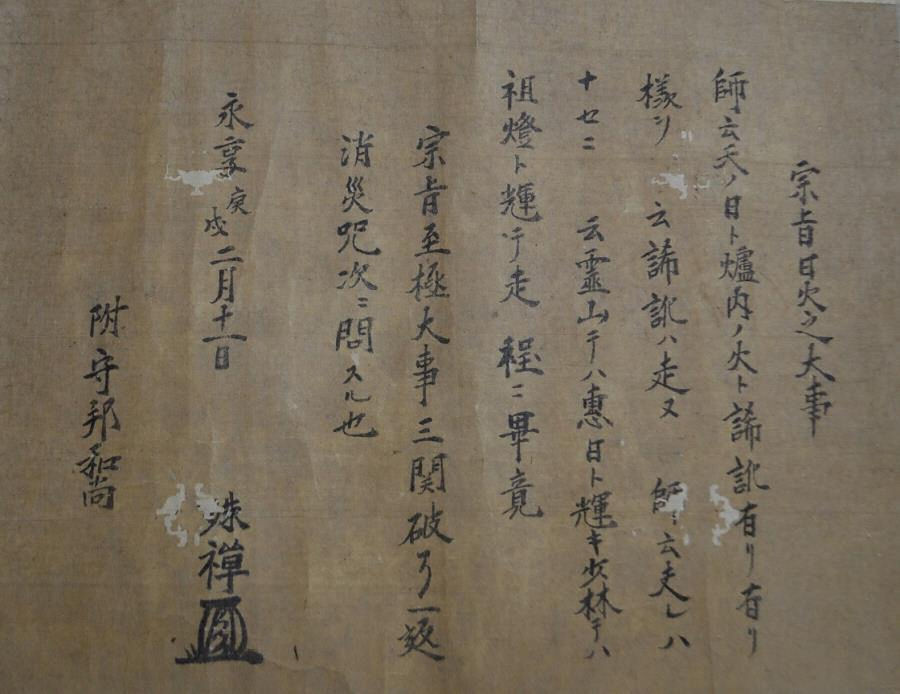 宗旨日火之大事
師云天ノ日ト爐内ノ火ト誵訛有リ有リ
様ソ 云誵訛ハ走ヌ 師云走レハ
十セニ 云霊山テハ惠日ト輝キ少林テハ
祖燈ト輝テ走 程ニ畢竟
宗旨至極大事三関破了一返
消災咒次ニ問スル也
永享庚戌二月十一日
殊禅
附守邦和尚